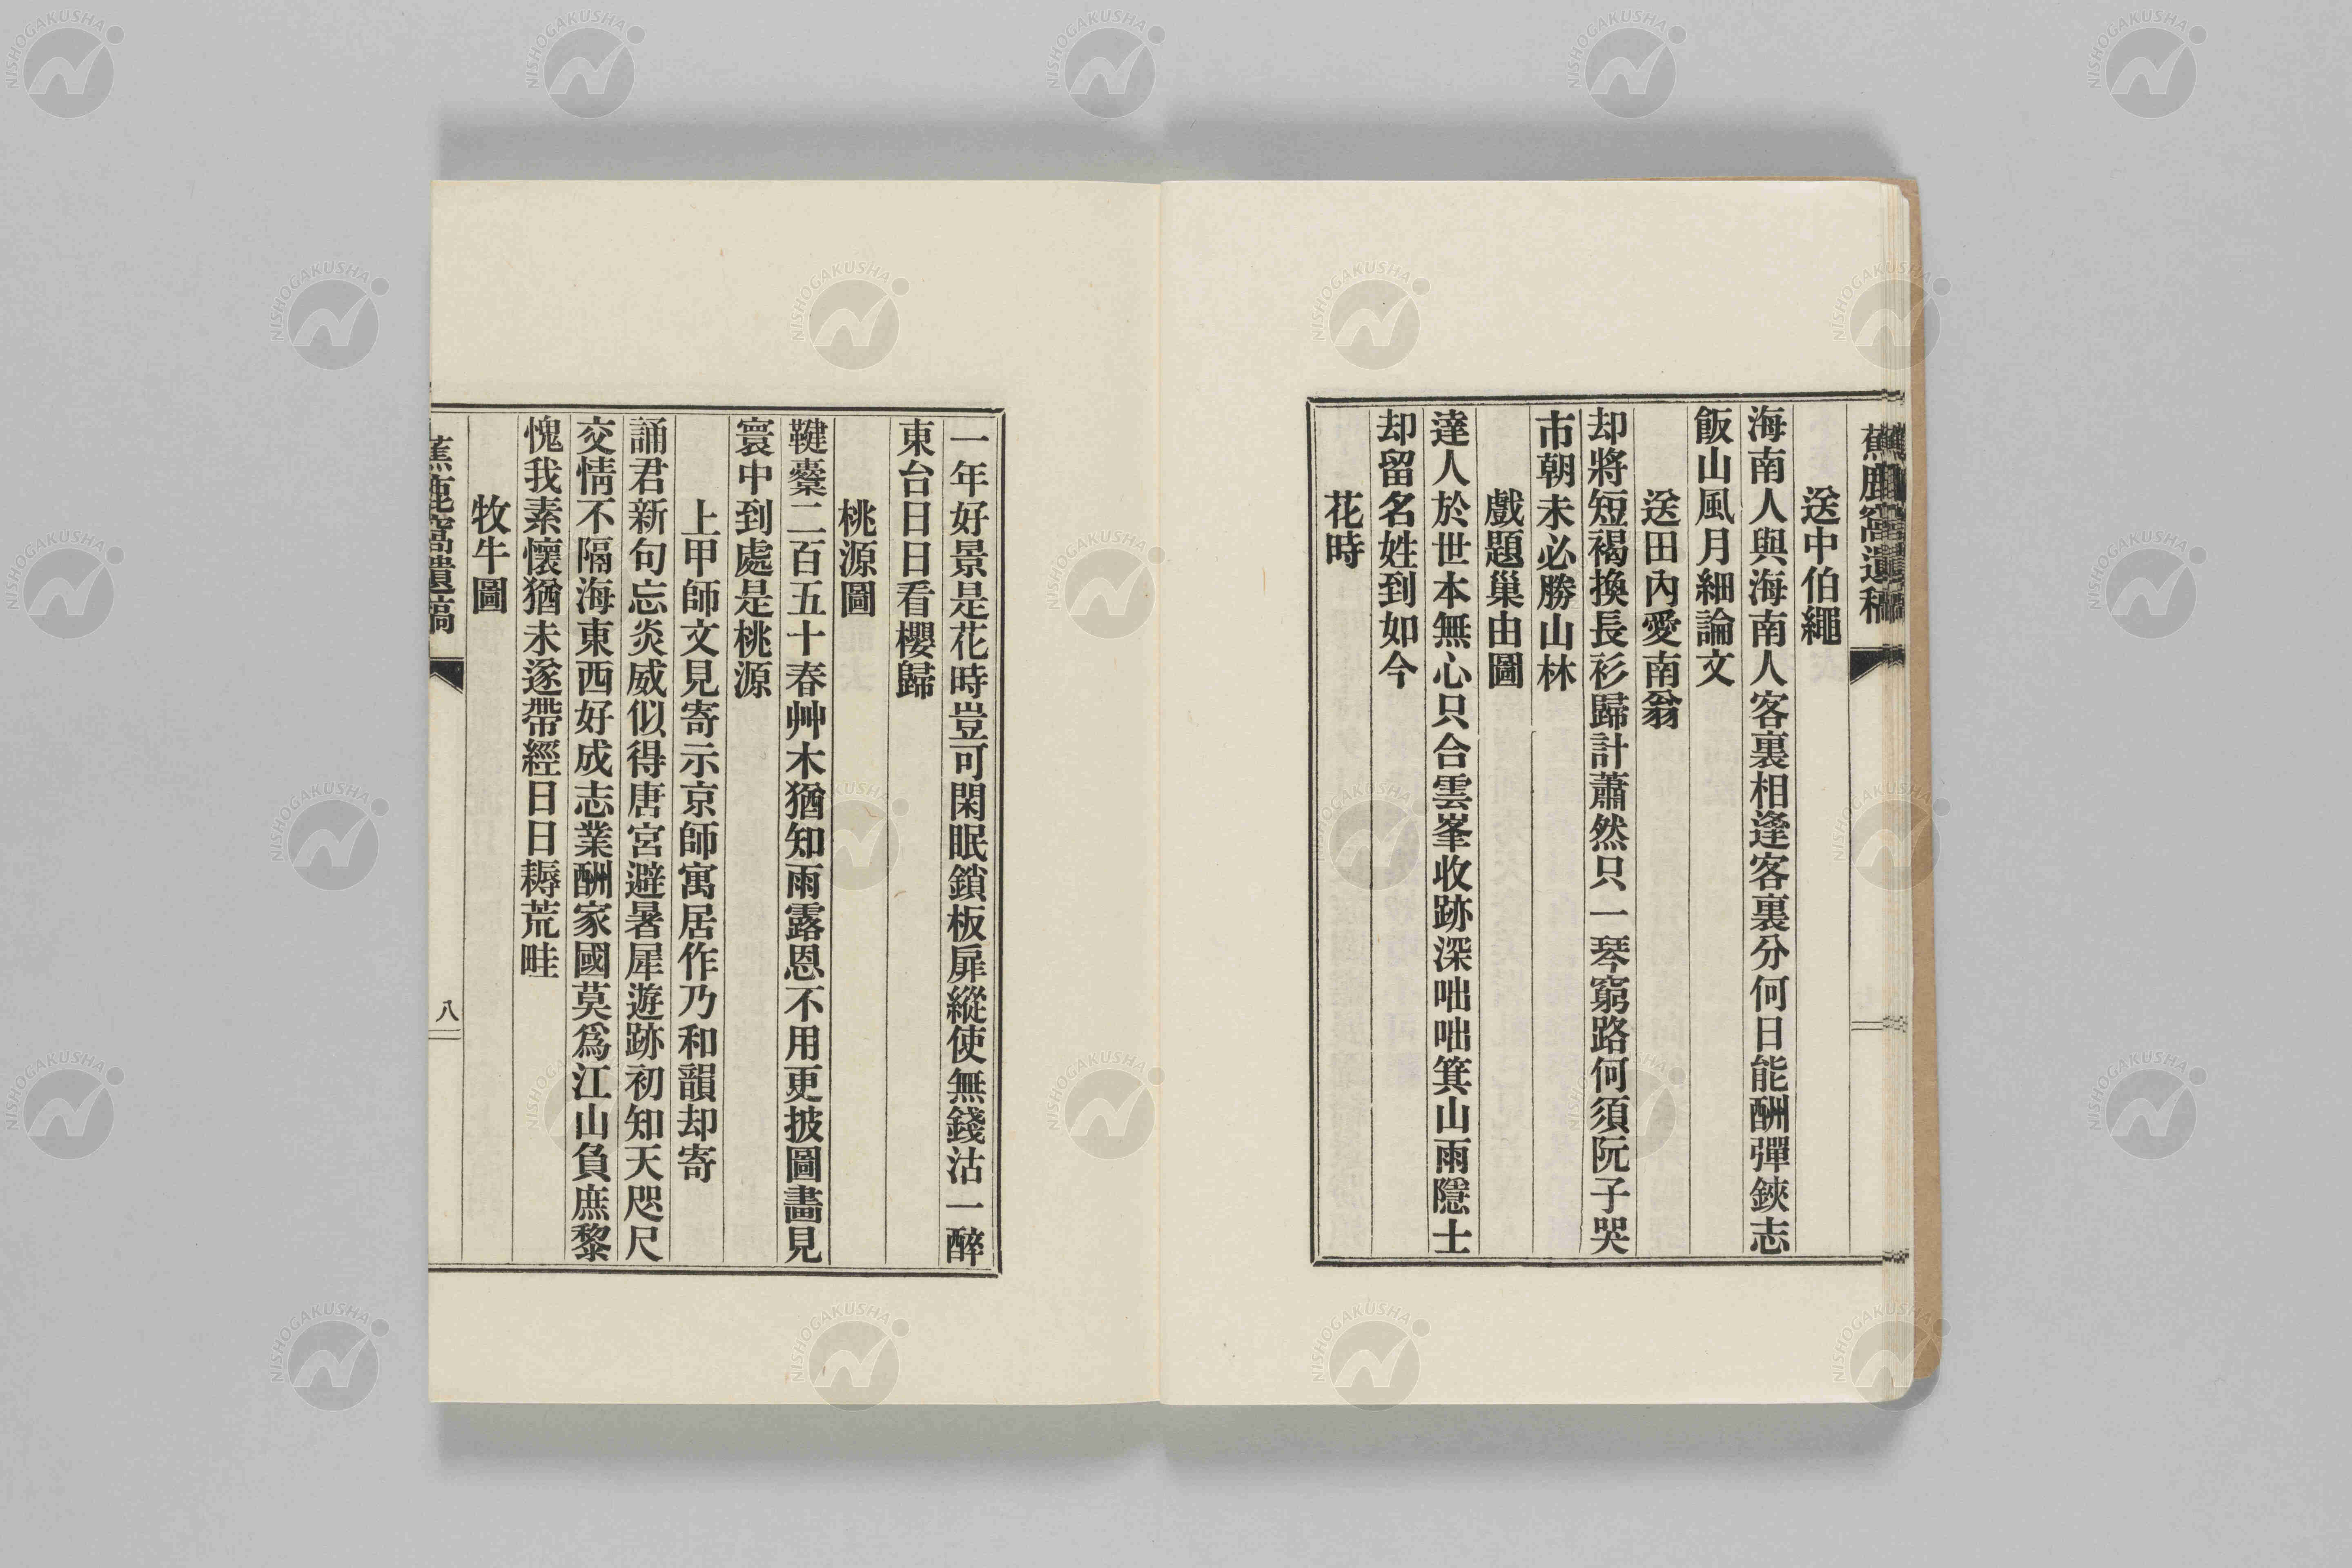 蕉鹿窩遺稿
送中伯繩
海南人與海南人客裏相逢客裏分何日能酬彈鋏志
飯山風月細論文
送田內愛南翁
却將短褐換長衫歸計蕭然只一琴窮路何須阮子哭
市朝未必勝山林
戲題巢由圖
達人於世本無心只合雲峯收跡深咄咄箕山雨隱士
却留名姓到如今
花時
一年好景是花時豈可閑眠鎖板扉縱使無錢沽一醉
東台日日看櫻歸
桃源圖
鞬櫜二百五十春艸木猶知雨露恩不用更披圖畫見
寰中到處是桃源
上甲師文見寄示京師寓居作乃和韻却寄
誦君新句忘炎威似得唐宮避暑犀遊跡初知天咫尺
交情不隔海東西好成志業酬家國莫爲江山負庶黎
愧我素懷猶未遂帶經日日耨荒畦
牧牛圖
蕉鹿窩遺稿
八
NISHOGAKUSHA